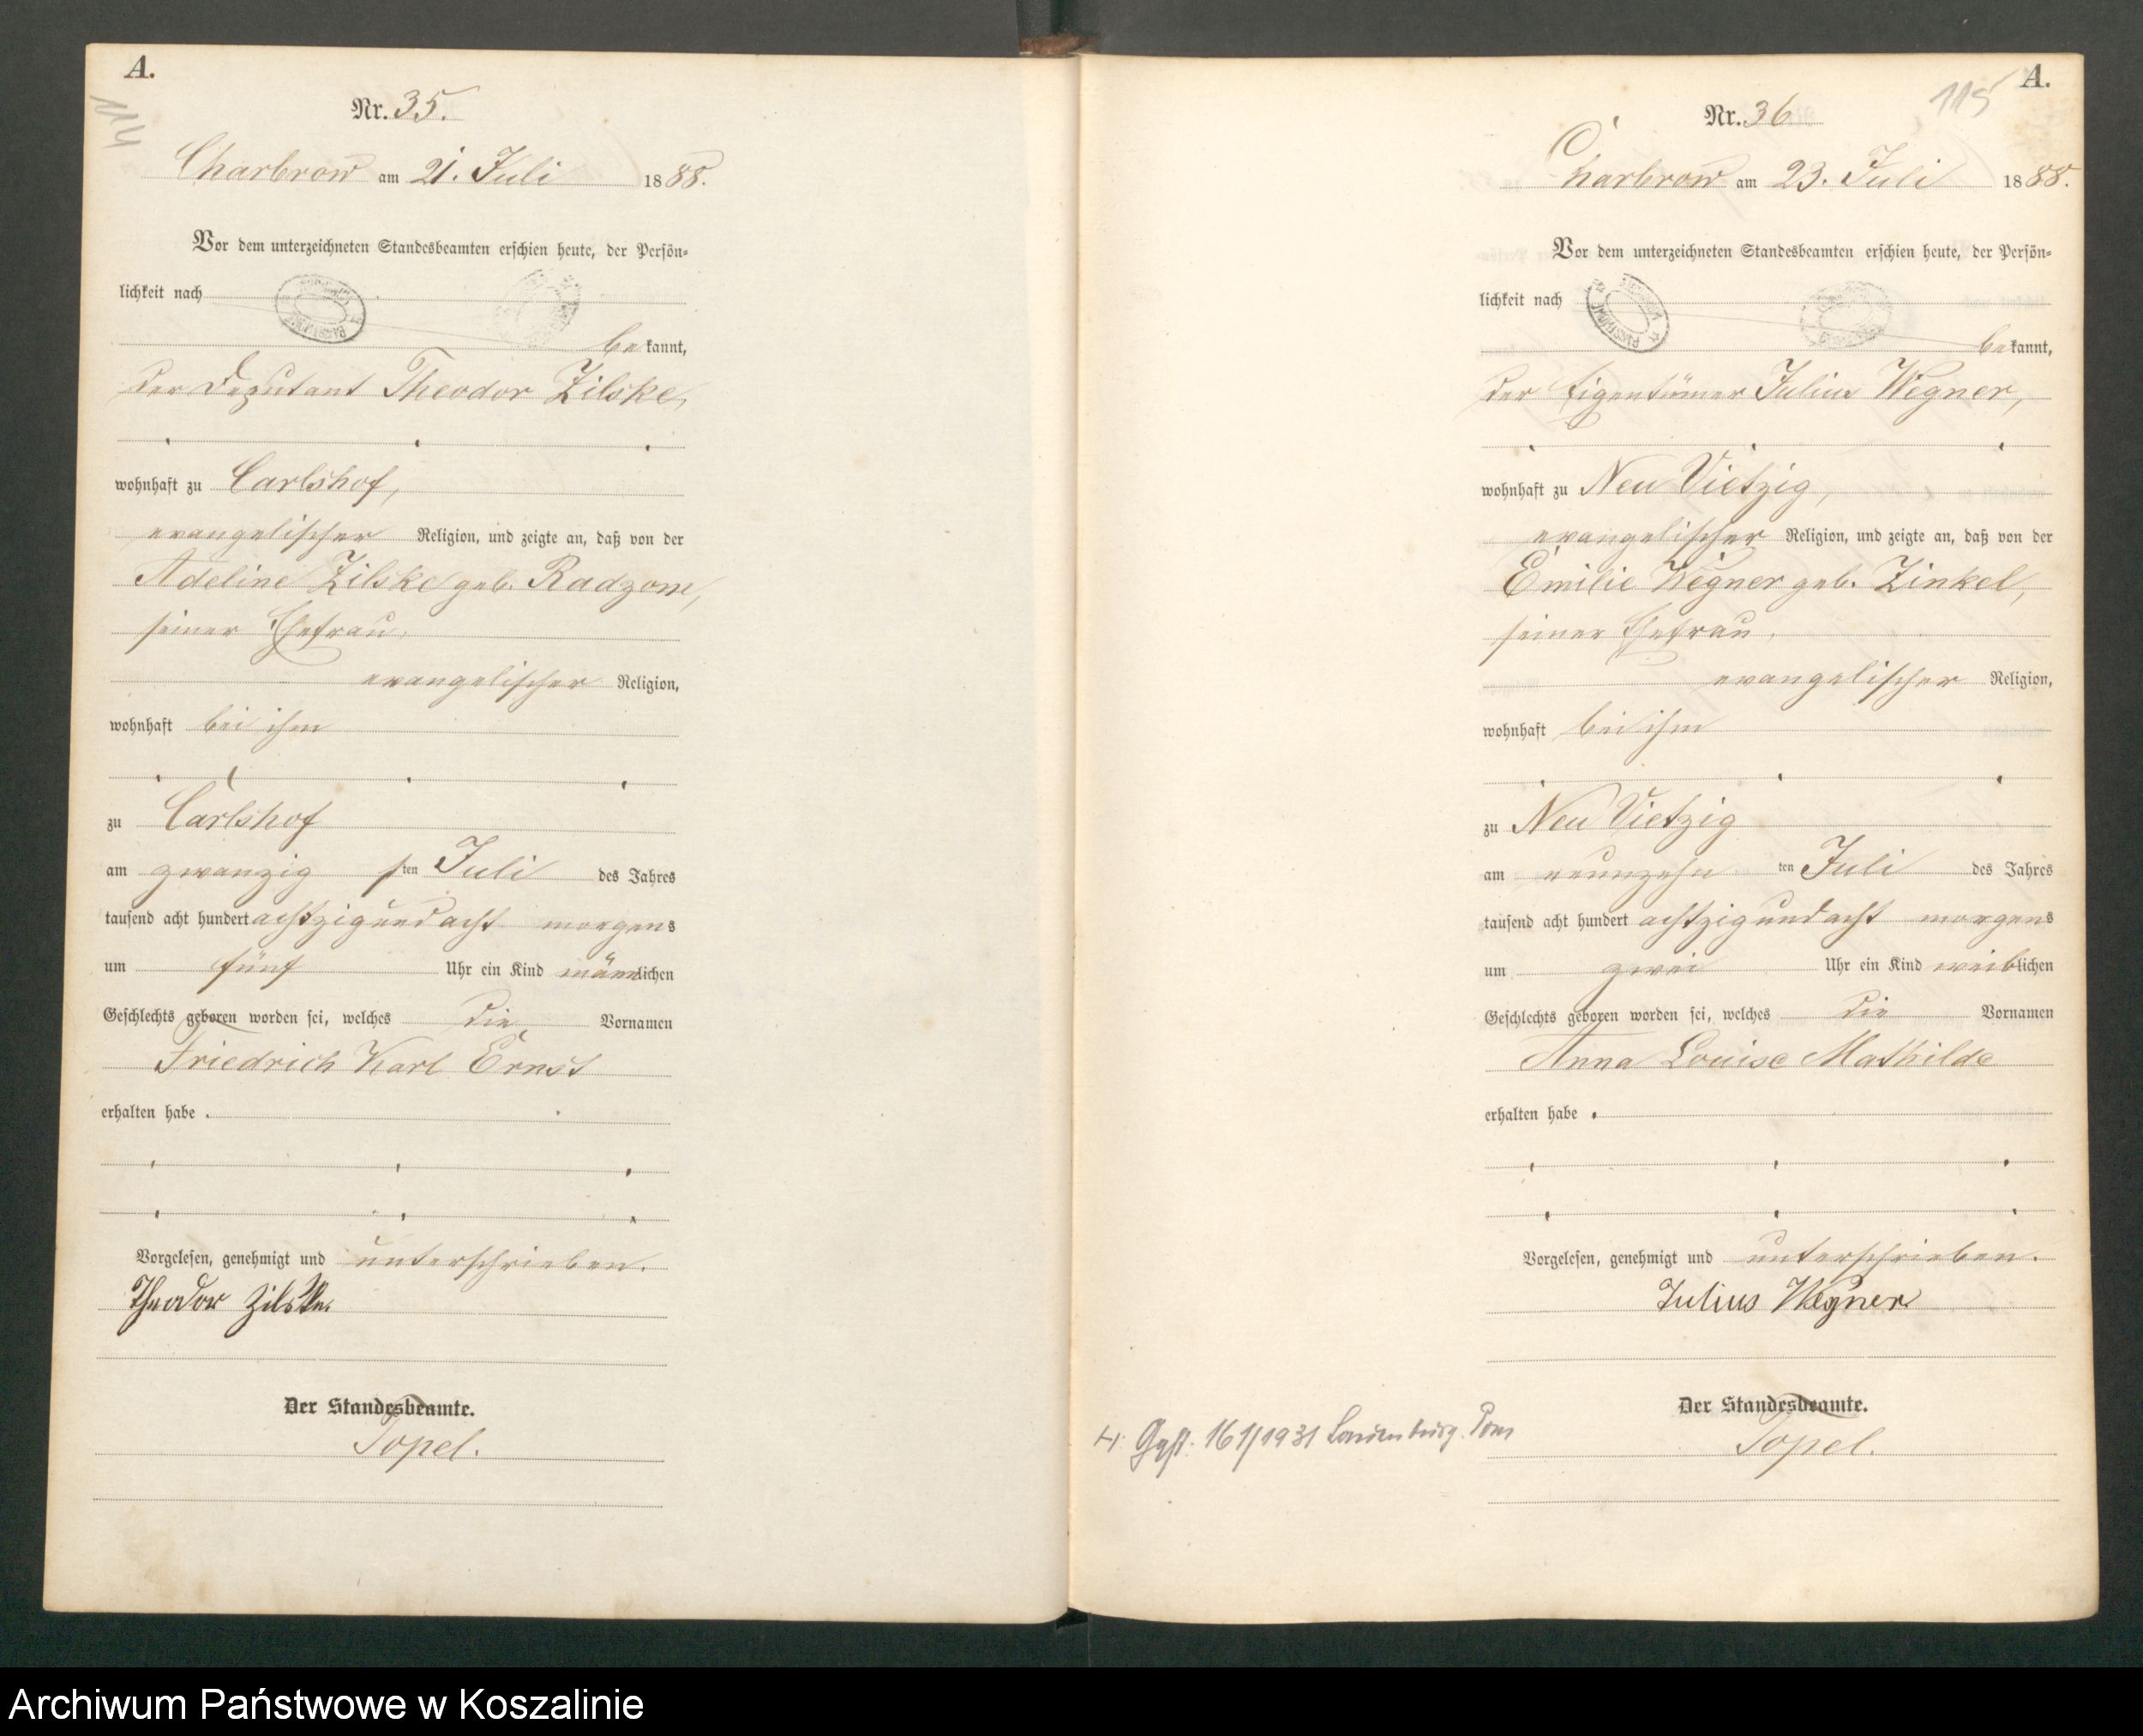 A.
114
Nr. 35.
Charbrow am 21. Juli 1888.
Vor dem unterzeichneten Standesbeamten erschien heute, der Persön-
lichkeit nach
bekannt,
der Deputant Theodor Zilske,
wohnhaft zu Carlshof,
evangelischer Religion, und zeigte an, daß von der
Adeline Zilske geb. Radzom,
seiner Ehefrau,
evangelischer Religion,
wohnhaft bei ihm
zu Carlshof
am zwanzigsten Juli des Jahres
tausend acht hundert achtzig und acht morgens
um fünf Uhr ein Kind männlichen
Geschlechts geboren worden sei, welches die Vornamen
Friedrich Karl Ernst
erhalten habe.
Vorgelesen, genehmigt und unterschrieben.
Theodor Zilske.
Der Standesbeamte.
Topel.
A.
115
Nr. 36
Charbrow am 23. Juli 1888.
Vor dem unterzeichneten Standesbeamten erschien heute, der Persön-
lichkeit nach
bekannt,
der Eigentümer Julius Wegner,
wohnhaft zu Neu Vietzig,
evangelischer Religion, und zeigte an, daß von der
Emilie Wegner geb. Zinkel,
seiner Ehefrau,
evangelischer Religion,
wohnhaft bei ihm
zu Neu Vietzig
am neunzehnten Juli des Jahres
tausend acht hundert achtzig und acht morgens
um zwei Uhr ein Kind weiblichen
Geschlechts geboren worden sei, welches die Vornamen
Anna Louise Mathilde
erhalten habe.
Vorgelesen, genehmigt und unterschrieben.
Julius Wegner
Der Standesbeamte.
Topel.
161/1931 Lauenburg. Pom
Archiwum Państwowe w Koszalinie